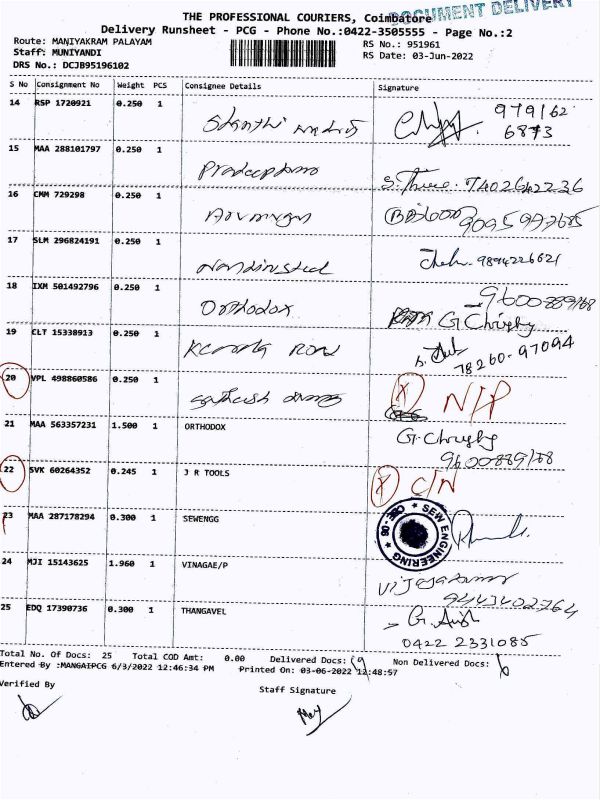 THE PROFESSIONAL COURIERS, Coimbatore
DOCUMENT DELIVERY
Delivery Runsheet - PCG - Phone No.:0422-3505555 - Page No.:2
Route: MANIYAKRAM PALAYAM RS No.: 951961
Staff: MUNIYANDI RS Date: 03-Jun-2022
DRS No.: DCJB95196102
S No Consignment No Weight PCS Consignee Details Signature
14 RSP 1720921 0.250 1 979162
6873
15 MAA 288101797 0.250 1 7402642236
16 CMM 729298 0.250 1
17 SLM 296824191 0.250 1 9894226621
18 IXM 501492796 0.250 1 Orthodox G. Christy 9600889168
19 CLT 15338913 0.250 1 Kerala Road 78260-97094
20 VPL 498860586 0.250 1 X N/P
21 MAA 563357231 1.500 1 ORTHODOX G. Christy
9600889168
22 SVK 60264352 0.245 1 J R TOOLS X C/N
23 MAA 287178294 0.300 1 SEWENGG SEW ENGINEERING CBE-06
24 MJI 15143625 1.960 1 VINAGAE/P
9443402764
25 EDQ 17390736 0.300 1 THANGAVEL
0422 2331085
Total No. Of Docs: 25 Total COD Amt: 0.00 Delivered Docs: 19 Non Delivered Docs: 6
Entered By :MANGAIPCG 6/3/2022 12:46:34 PM Printed On: 03-06-2022 12:48:57
Verified By Staff Signature